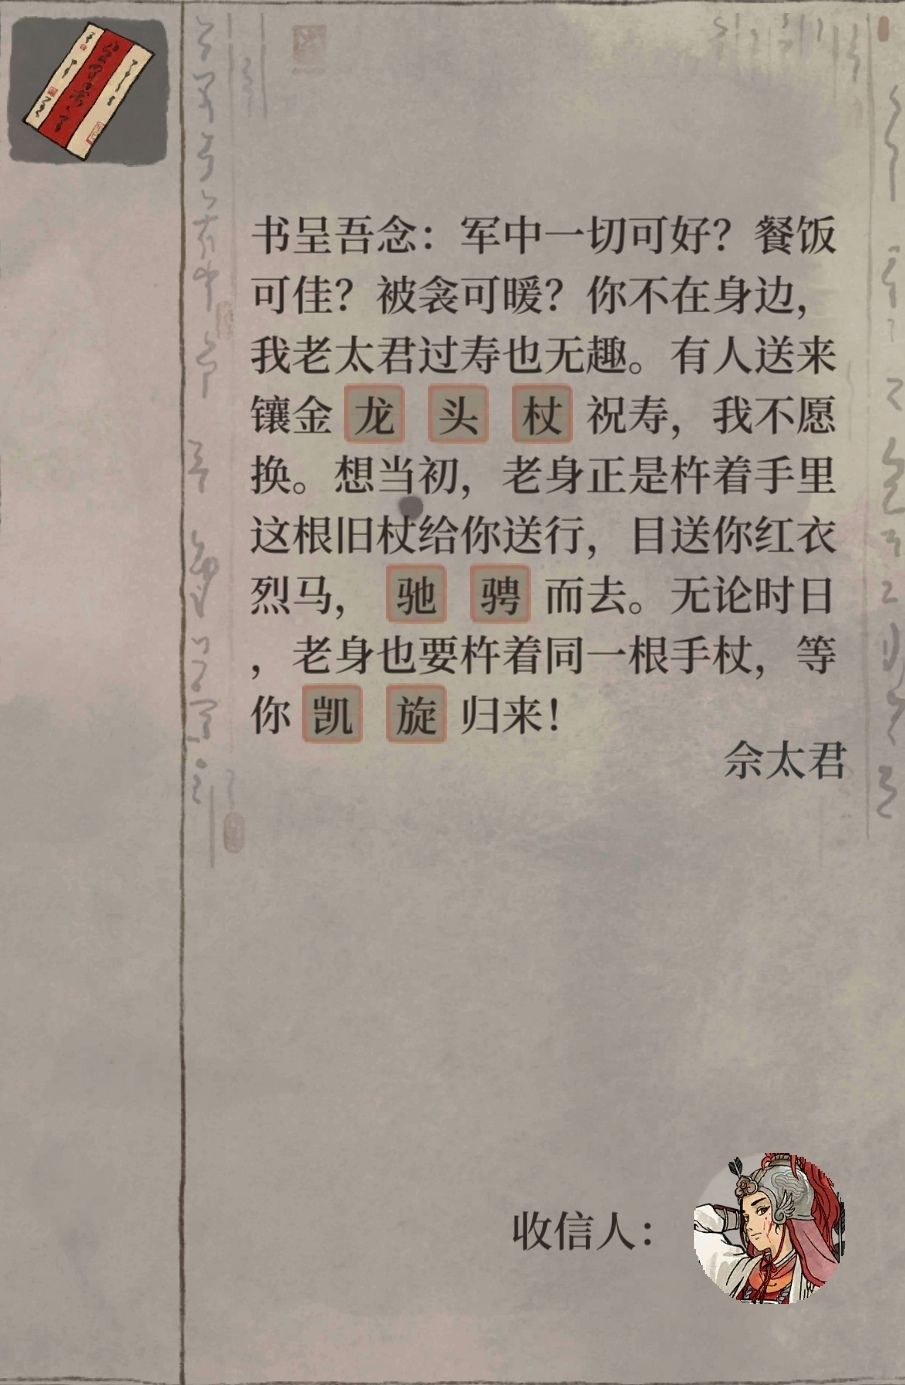 书呈吾念：军中一切可好？餐饭
可佳？被衾可暖？你不在身边，
我老太君过寿也无趣。有人送来
镶金龙头杖祝寿，我不愿
换。想当初，老身正是杵着手里
这根旧杖给你送行，目送你红衣
烈马，驰骋而去。无论时日
，老身也要杵着同一根手杖，等
你凯旋归来！
佘太君
收信人：